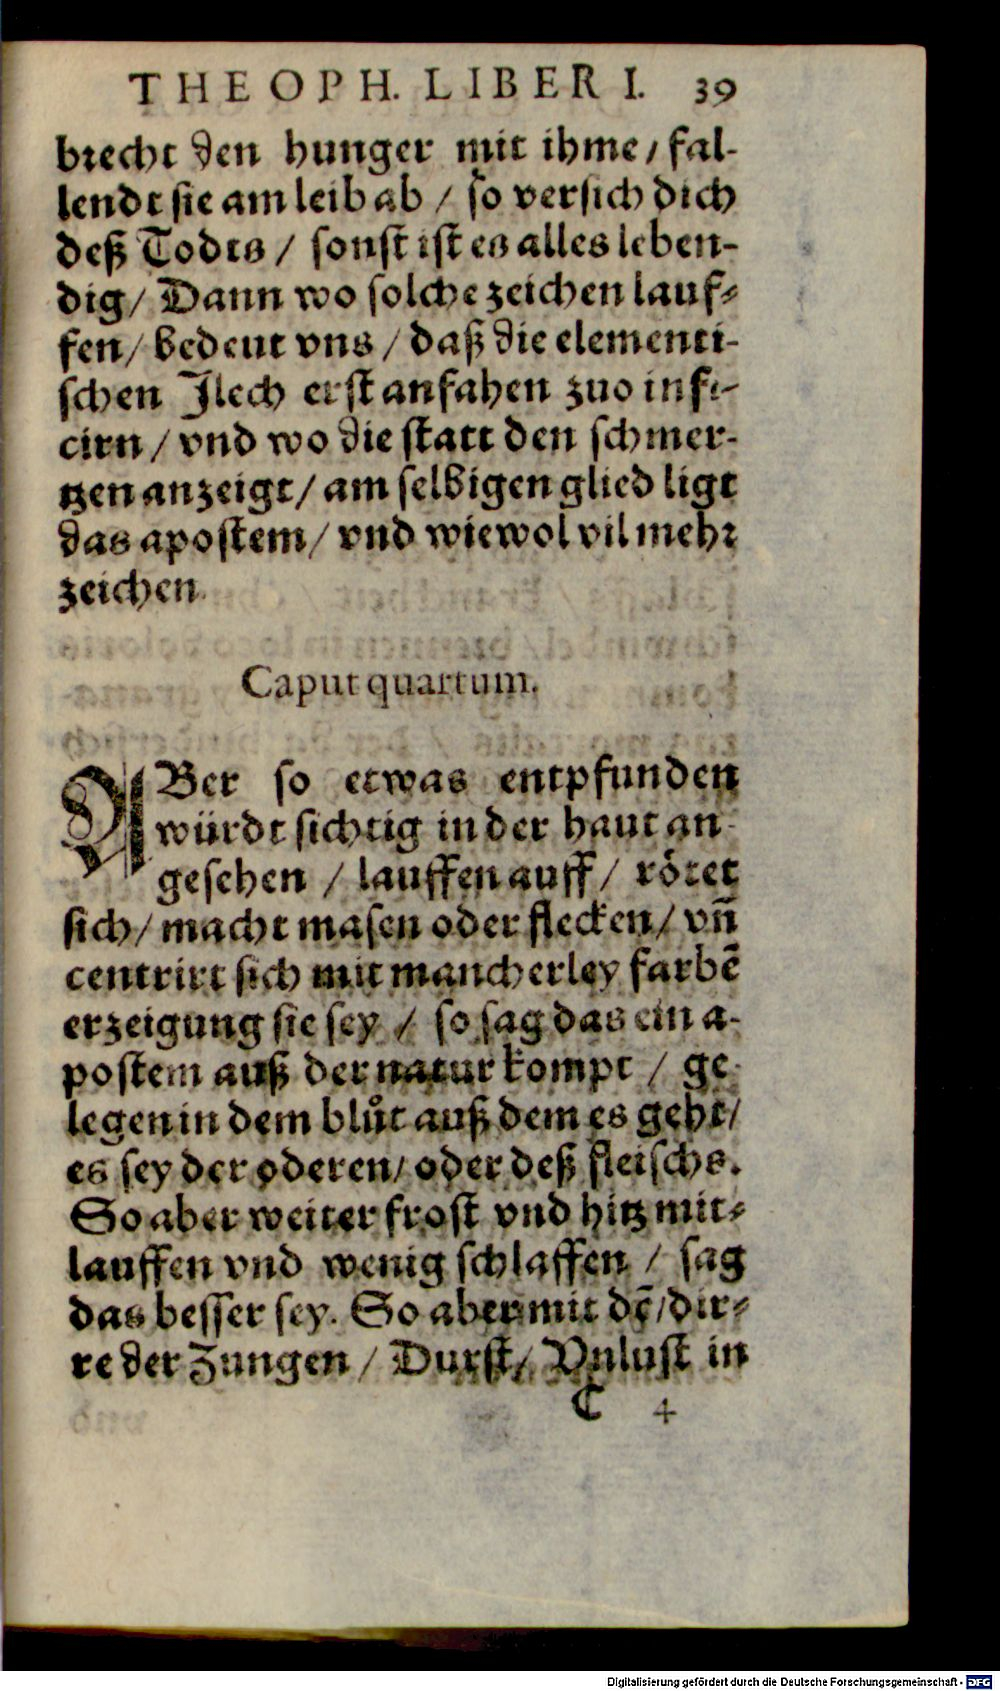 THEOPH. LIBER I. 39
brecht den hunger mit ihme / fal-
lendt sie am leib ab / so versich dich
deß Todts / sonst ist es alles leben-
dig / Dann wo solche zeichen lauf-
fen / bedeut vns / daß die elementi-
schen Jlech erst anfahen zuo infi-
cirn / vnd wo die statt den schmer-
tzen anzeigt / am selbigen glied ligt
das apostem / vnd wiewol vil mehr
zeichen.
Caput quartum.
ABer so etwas entpfunden
würdt sichtig in der haut an-
gesehen / lauffen auff / rötet
sich / macht masen oder flecken / vn̄
centrirt sich mit mancherley farbē
erzeigung sie sey / so sag das ein a-
postem auß der natur kompt / ge-
legen in dem blůt auß dem es geht /
es sey der oderen / oder deß fleischs.
So aber weiter frost vnd hitz mit-
lauffen vnd wenig schlaffen / sag
das besser sey. So aber mit dē / dir-
re der Zungen / Durst / Vnlust in
C 4
Digitalisierung gefördert durch die Deutsche Forschungsgemeinschaft - DFG